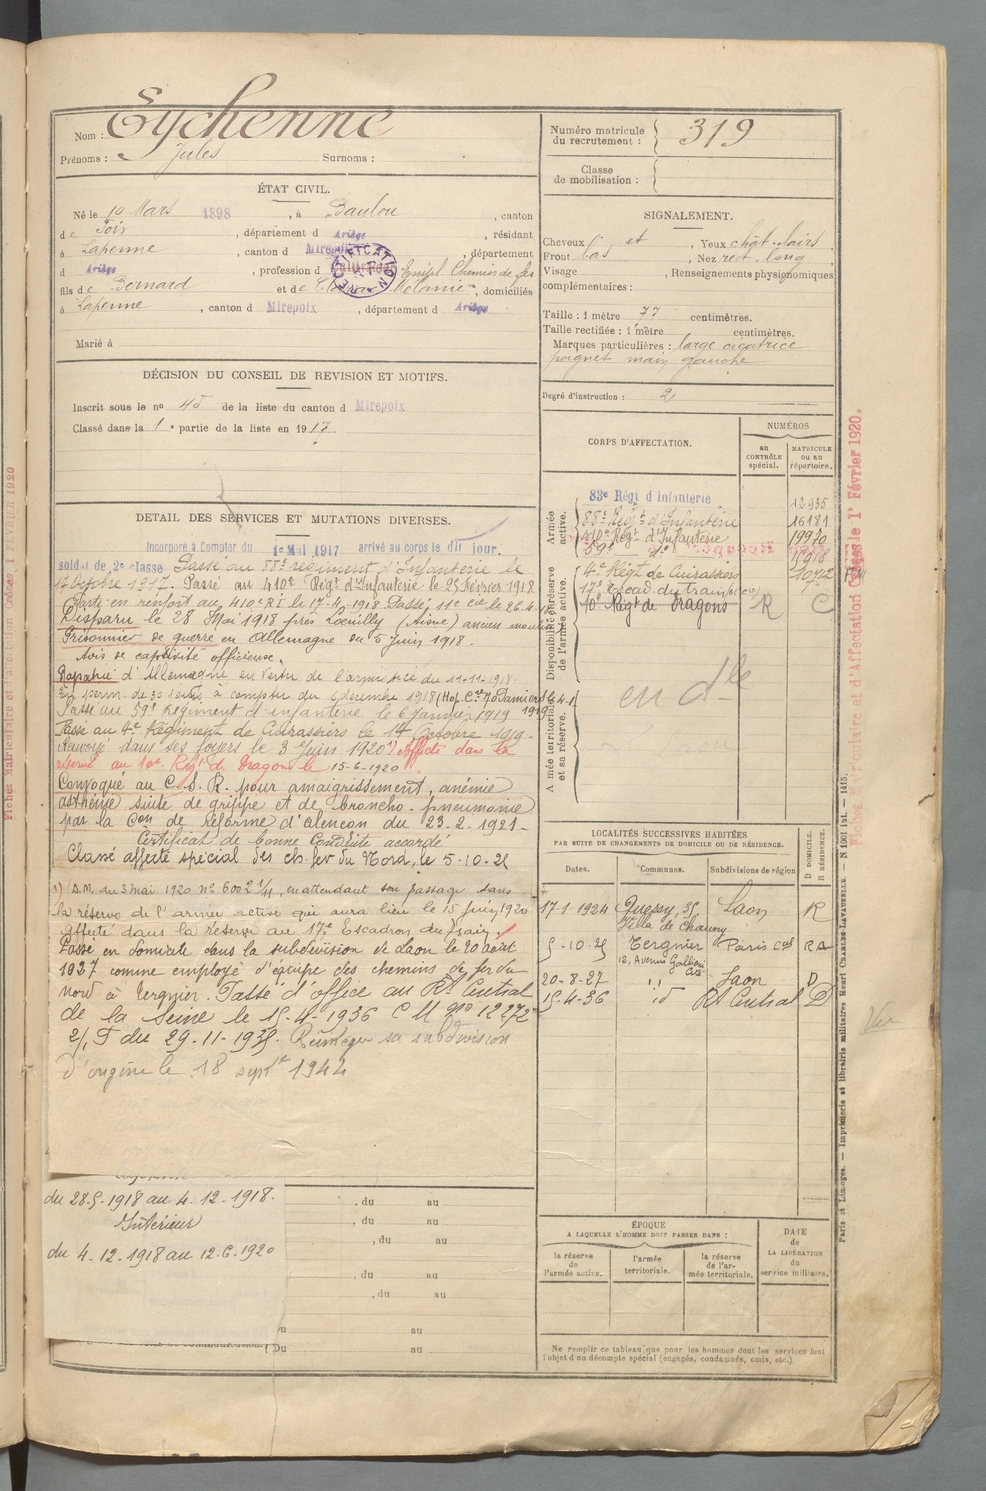 Nom : Eychenne
Prénoms : Jules Surnoms :
ÉTAT CIVIL.
Né le 10 Mars 1898, à Baulou, canton
de Foix, département d Ariège, résidant
à Lapenne, canton d Mirepoix, département
d Ariège, profession d Cultivateur Empl. Chemin de fer
RECTIFICATION
fils de Bernard et de Mélanie, domiciliés
à Lapenne, canton d Mirepoix, département d Ariège
Marié à
DÉCISION DU CONSEIL DE REVISION ET MOTIFS.
Inscrit sous le no 45 de la liste du canton d Mirepoix
Classé dans la 1e partie de la liste en 1917.
DETAIL DES SERVICES ET MUTATIONS DIVERSES.
Incorporé à Compter du 1er Mai 1917 arrivé au corps le dit jour.
soldat de 2e classe Passé au 88e régiment d'Infanterie le
octobre 1917. Passé au 410e Régt d'Infanterie le 25 février 1918
Parti en renfort au 410e RI le 17-4-1918 Passé 11e cie le 26.4.18
Disparu le 28 Mai 1918 près Loeuilly (Aisne) ancien moulin
Prisonnier de guerre en Allemagne du 5 juin 1918 -
Avis de captivité officieuse.
Rapatrié d'Allemagne en vertu de l'armistice du 11-11-1918.
En perm. de 30 jours à compter du 6 décembre 1918 (Hop. Cre No Pamiers le 4-1
1919
Passé au 59e Régiment d'infanterie le 6 Janvier 1919
Passé au 4e Régiment de Cuirassiers le 14 Octobre 1919 -
Renvoyé dans ses foyers le 3 Juin 1920 1) Affecté dans la
réserve au 10e Régt de Dragons le 15-6-1920
Convoqué au C.S.R. pour amaigrissement, anémie
asthénie suite de grippe et de broncho-pneumonie
par la Con de Réforme d'Alençon du 23-2-1921 -
Certificat de bonne Conduite accordé
Classé affecté spécial des ch. fer du Nord, le 5-10-25
1) D.M. du 3 mai 1920 no 6002 1/11, en attendant son passage dans
la réserve de l'armée active qui aura lieu le 15 juin 1920
affecté dans la réserve au 17e Escadron du train.
Passé en domicile dans la subdivision de Laon le 20 août
1927 comme employé d'équipe des chemins de fer du
Nord à Tergnier. Passé d'office au Rt Central
de la Seine le 15-4-1936 C M no 12272
2/1 T du 29-11-1935. Réintégré sa subdivision
d'origine le 18 septre 1944
du 28-5-1918 au 4-12-1918.
Intérieur
du 4-12-1918 au 12-6-1920
, du au
, du au
, du au
, du au
, du au
du au
Du au
Numéro matricule du recrutement : 319
Classe de mobilisation :
SIGNALEMENT.
Cheveux , Yeux chât. clairs
Front bas , Nez rect. long
Visage , Renseignements physionomiques
complémentaires :
Taille : 1 mètre 77 centimètres.
Taille rectifiée : 1 mètre centimètres.
Marques particulières : large cicatrice
poignet main gauche
Degré d'instruction : 2
CORPS D'AFFECTATION.
NUMÉROS
AU CONTRÔLE spécial.
MATRICULE ou au répertoire.
Armée active.
83e Régt d'Infanterie 12935
88e Régt d'Infanterie 16181
410e Régt d'Infanterie 19970
59e do 5918
Disponibilité et réserve de l'armée active.
4e Régt de Cuirassiers 1072
17e Escad. du train
10e Régt de Dragons R C
Armée territoriale et sa réserve.
en dlle
LOCALITÉS SUCCESSIVES HABITÉES
PAR SUITE DE CHANGEMENTS DE DOMICILE OU DE RÉSIDENCE.
Dates. Communes. Subdivisions de région D DOMICILE. R RÉSIDENCE.
17-1-1924 Quessy, 35 Laon R
Villa de Chauny
5-10-25 Tergnier Paris Cal
12, Avenue Gallieni
Cité
20-8-27 " Laon D
15-4-36 id Rt Central D
ÉPOQUE
A LAQUELLE L'HOMME DOIT PASSER DANS :
la réserve de l'armée active.
l'armée territoriale.
la réserve de l'armée territoriale.
DATE de LA LIBÉRATION du service militaire.
Ne remplir ce tableau que pour les hommes dont les services font
l'objet d'un décompte spécial (engagés, condamnés, omis, etc.).
Paris et Limoges. — Imprimerie et librairie militaires Henri CHARLES-LAVAUZELLE. —
Fiches Matriculaire et d'Affectation Créées le 1er Février 1920.
Fiches Matriculaire et d'Affectation Créées 1 FÉVRIER 1920
Vu